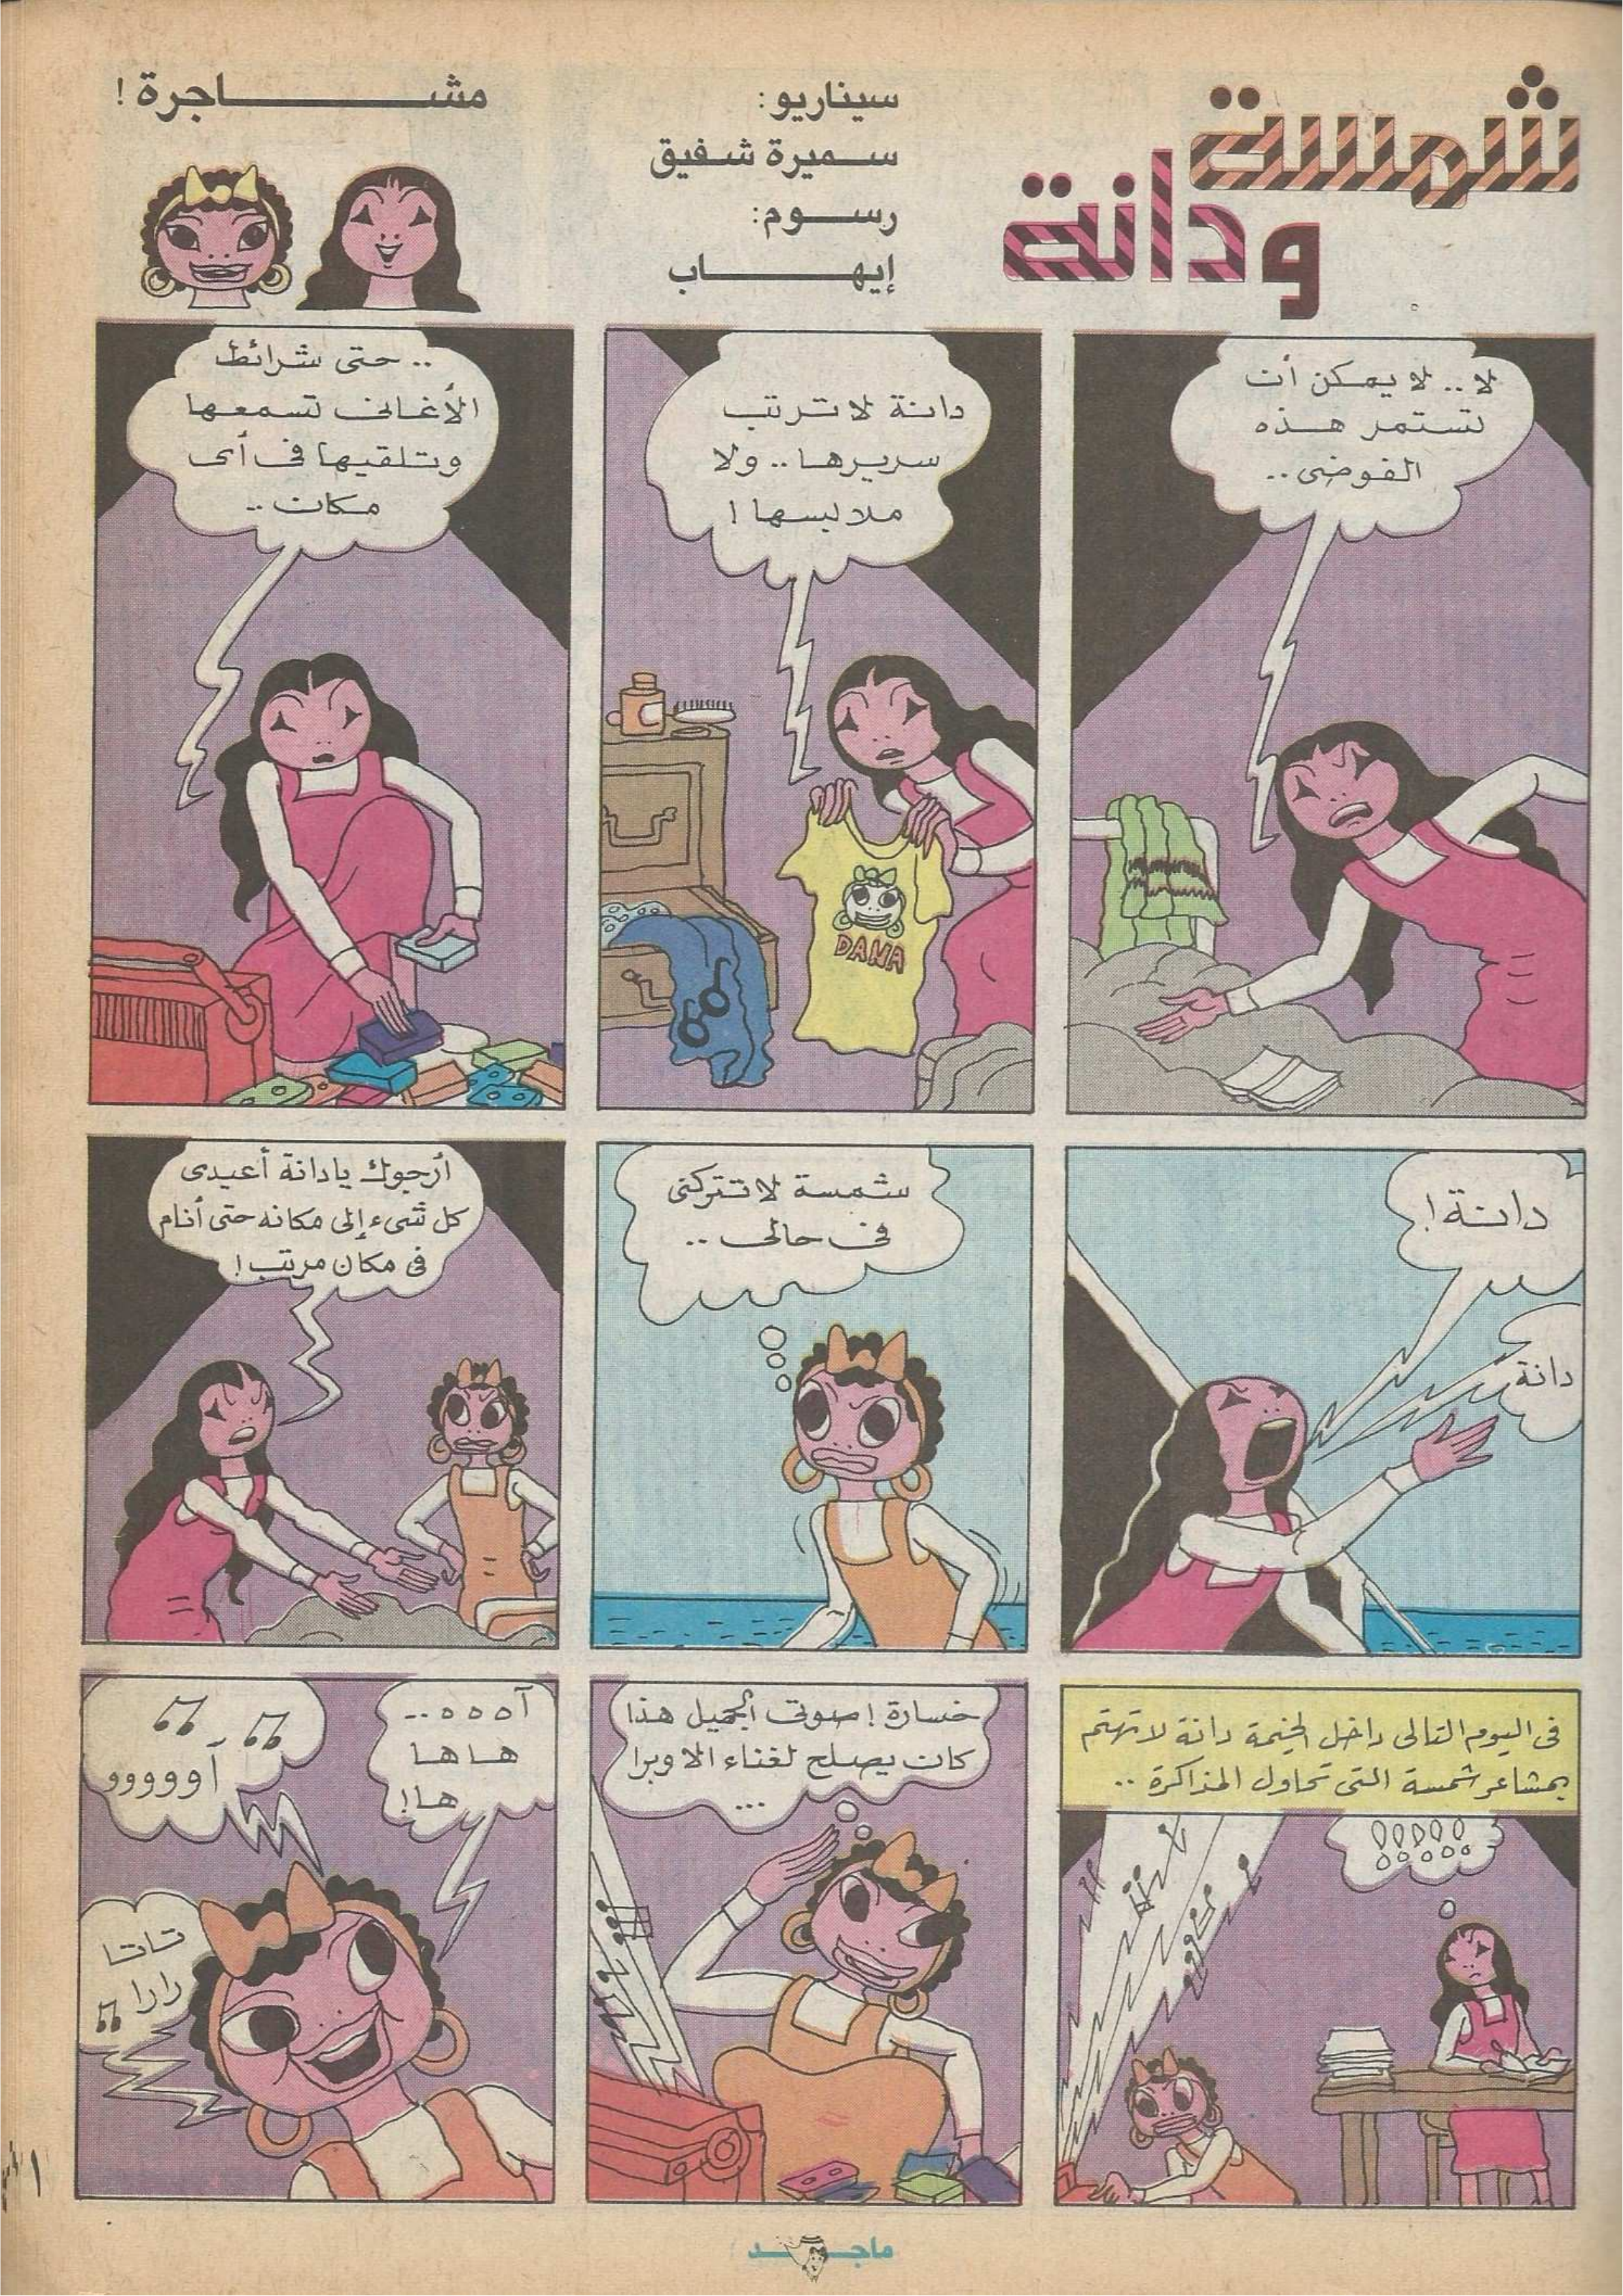 شمسة
ودانة
سيناريو:
سميرة شفيق
رسوم:
إيهاب
مشاجرة !
لا .. لا يمكن أن
تستمر هذه
الفوضى ..
دانة لا ترتب
سريرها .. ولا
ملابسها !
DANA
.. حتى شرائط
الأغانى تسمعها
وتلقيها فى أى
مكان ..
دانة !
دانة
شمسة لا تتركنى
فى حالى ..
أرجوك يا دانة أعيدى
كل شىء إلى مكانه حتى أنام
فى مكان مرتب !
فى اليوم التالى داخل الخيمة دانة لا تهتم
بمشاعر شمسة التى تحاول المذاكرة ..
!!!!!
خسارة ! صوتى الجميل هذا
كان يصلح لغناء الاوبرا
...
آه ه ه ..
هاها
ها !
أووووو
تاتا
رارا
ماجد